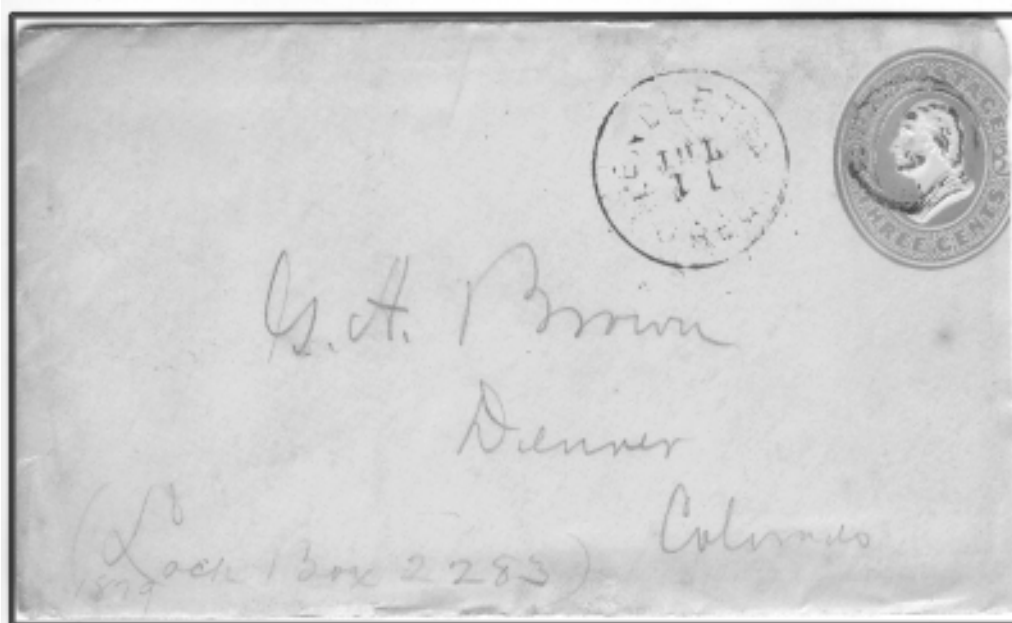 JUL
11
U.S. POSTAGE
THREE CENTS
G. H. Brown
Denver
Colorado
(Lock Box 2283)
1879